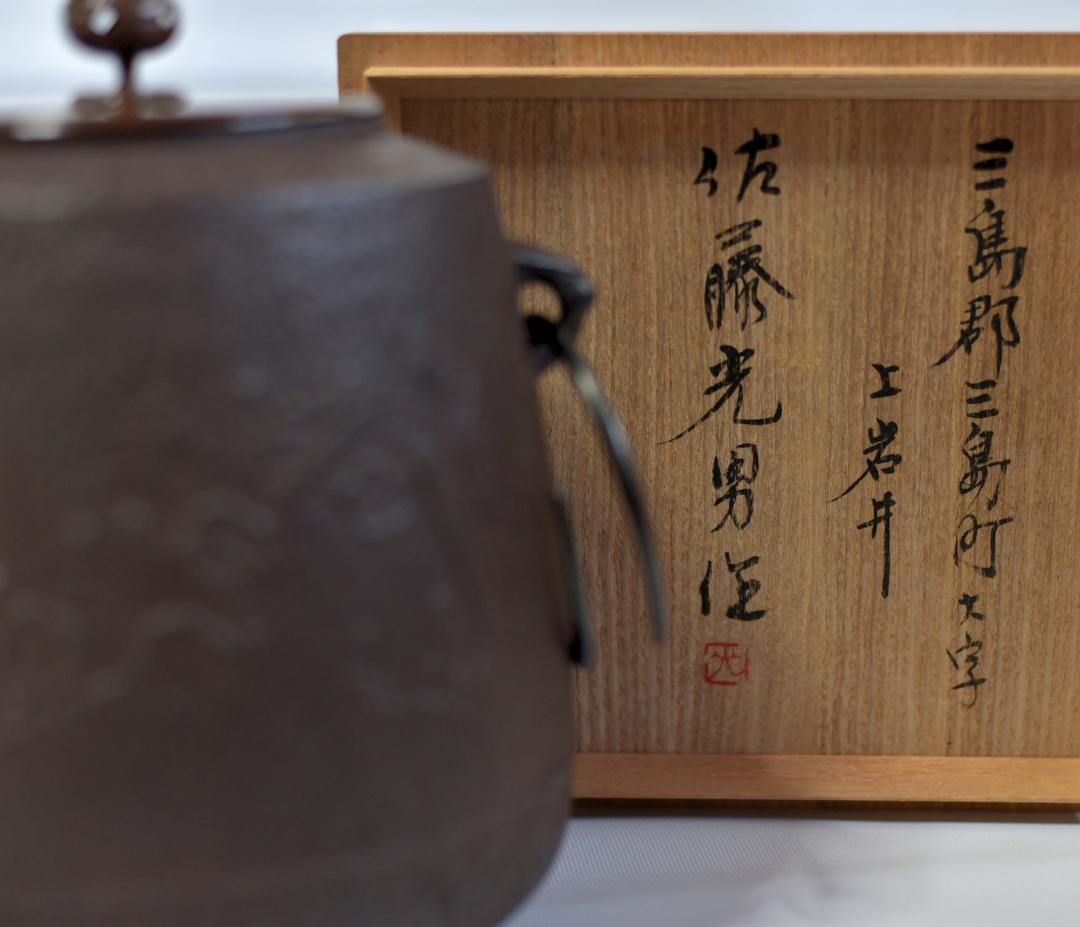 三島郡三島町大字
上岩井
佐藤光男作